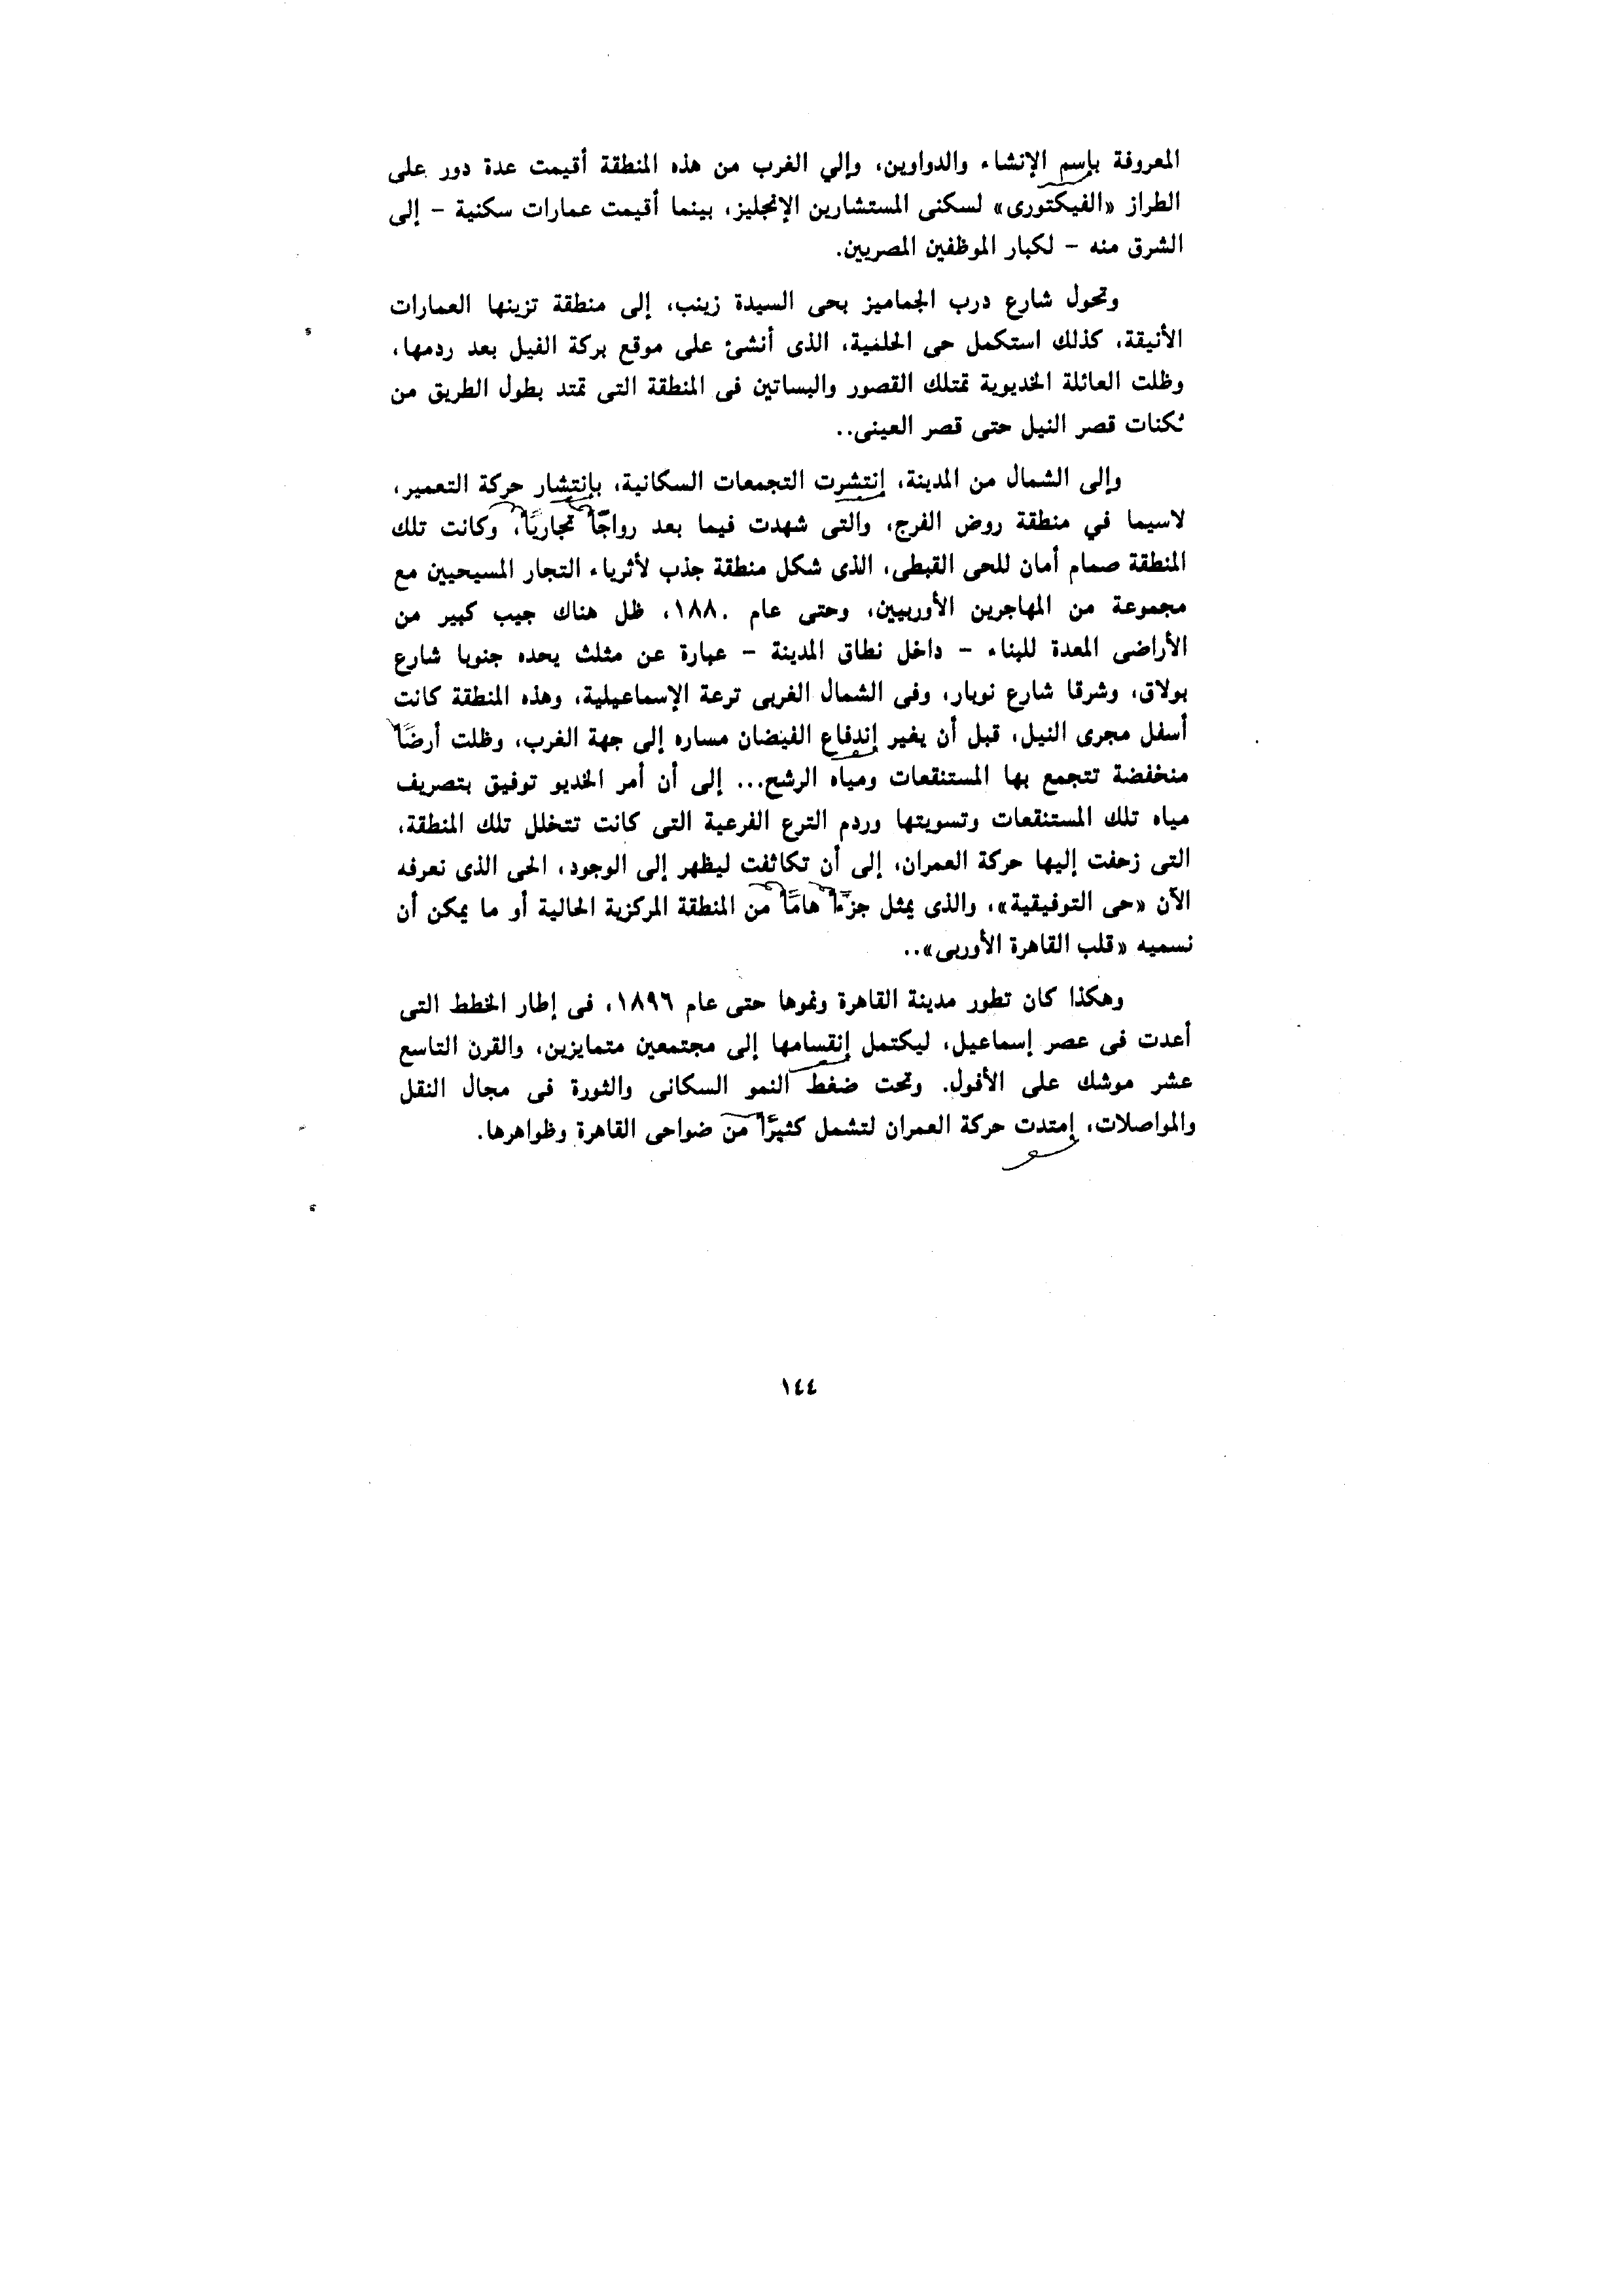 المعروفة بإسم الإنشاء والدواوين، وإلي الغرب من هذه المنطقة أقيمت عدة دور على
الطراز «الفيكتورى» لسكنى المستشارين الإنجليز، بينما أقيمت عمارات سكنية - إلى
الشرق منه - لكبار الموظفين المصريين.
وتحول شارع درب الجماميز بحى السيدة زينب، إلى منطقة تزينها العمارات
الأنيقة، كذلك استكمل حى الحلمية، الذى أنشئ على موقع بركة الفيل بعد ردمها،
وظلت العائلة الخديوية تمتلك القصور والبساتين فى المنطقة التى تمتد بطول الطريق من
ثكنات قصر النيل حتى قصر العينى..
وإلى الشمال من المدينة، إنتشرت التجمعات السكانية، بإنتشار حركة التعمير،
لاسيما في منطقة روض الفرج، والتى شهدت فيما بعد رواجًا تجاريًا، وكانت تلك
المنطقة صمام أمان للحى القبطى، الذى شكل منطقة جذب لأثرياء التجار المسيحيين مع
مجموعة من المهاجرين الأوربيين، وحتى عام ١٨٨٠، ظل هناك جيب كبير من
الأراضى المعدة للبناء - داخل نطاق المدينة - عبارة عن مثلث يحده جنوبا شارع
بولاق، وشرقا شارع نوبار، وفى الشمال الغربى ترعة الإسماعيلية، وهذه المنطقة كانت
أسفل مجرى النيل، قبل أن يغير إندفاع الفيضان مساره إلى جهة الغرب، وظلت أرضًا
منخفضة تتجمع بها المستنقعات ومياه الرشح... إلى أن أمر الخديو توفيق بتصريف
مياه تلك المستنقعات وتسويتها وردم الترع الفرعية التى كانت تتخلل تلك المنطقة،
التى زحفت إليها حركة العمران، إلى أن تكاثفت ليظهر إلى الوجود، الحى الذى نعرفه
الآن «حى التوفيقية»، والذى يمثل جزءًا هامًا من المنطقة المركزية الحالية أو ما يمكن أن
نسميه «قلب القاهرة الأوربى»..
وهكذا كان تطور مدينة القاهرة ونموها حتى عام ١٨٩٦، فى إطار الخطط التى
أعدت فى عصر إسماعيل، ليكتمل إنقسامها إلى مجتمعين متمايزين، والقرن التاسع
عشر موشك على الأفول. وتحت ضغط النمو السكانى والثورة فى مجال النقل
والمواصلات، إمتدت حركة العمران لتشمل كثيرًا من ضواحى القاهرة وظواهرها.
١٤٤